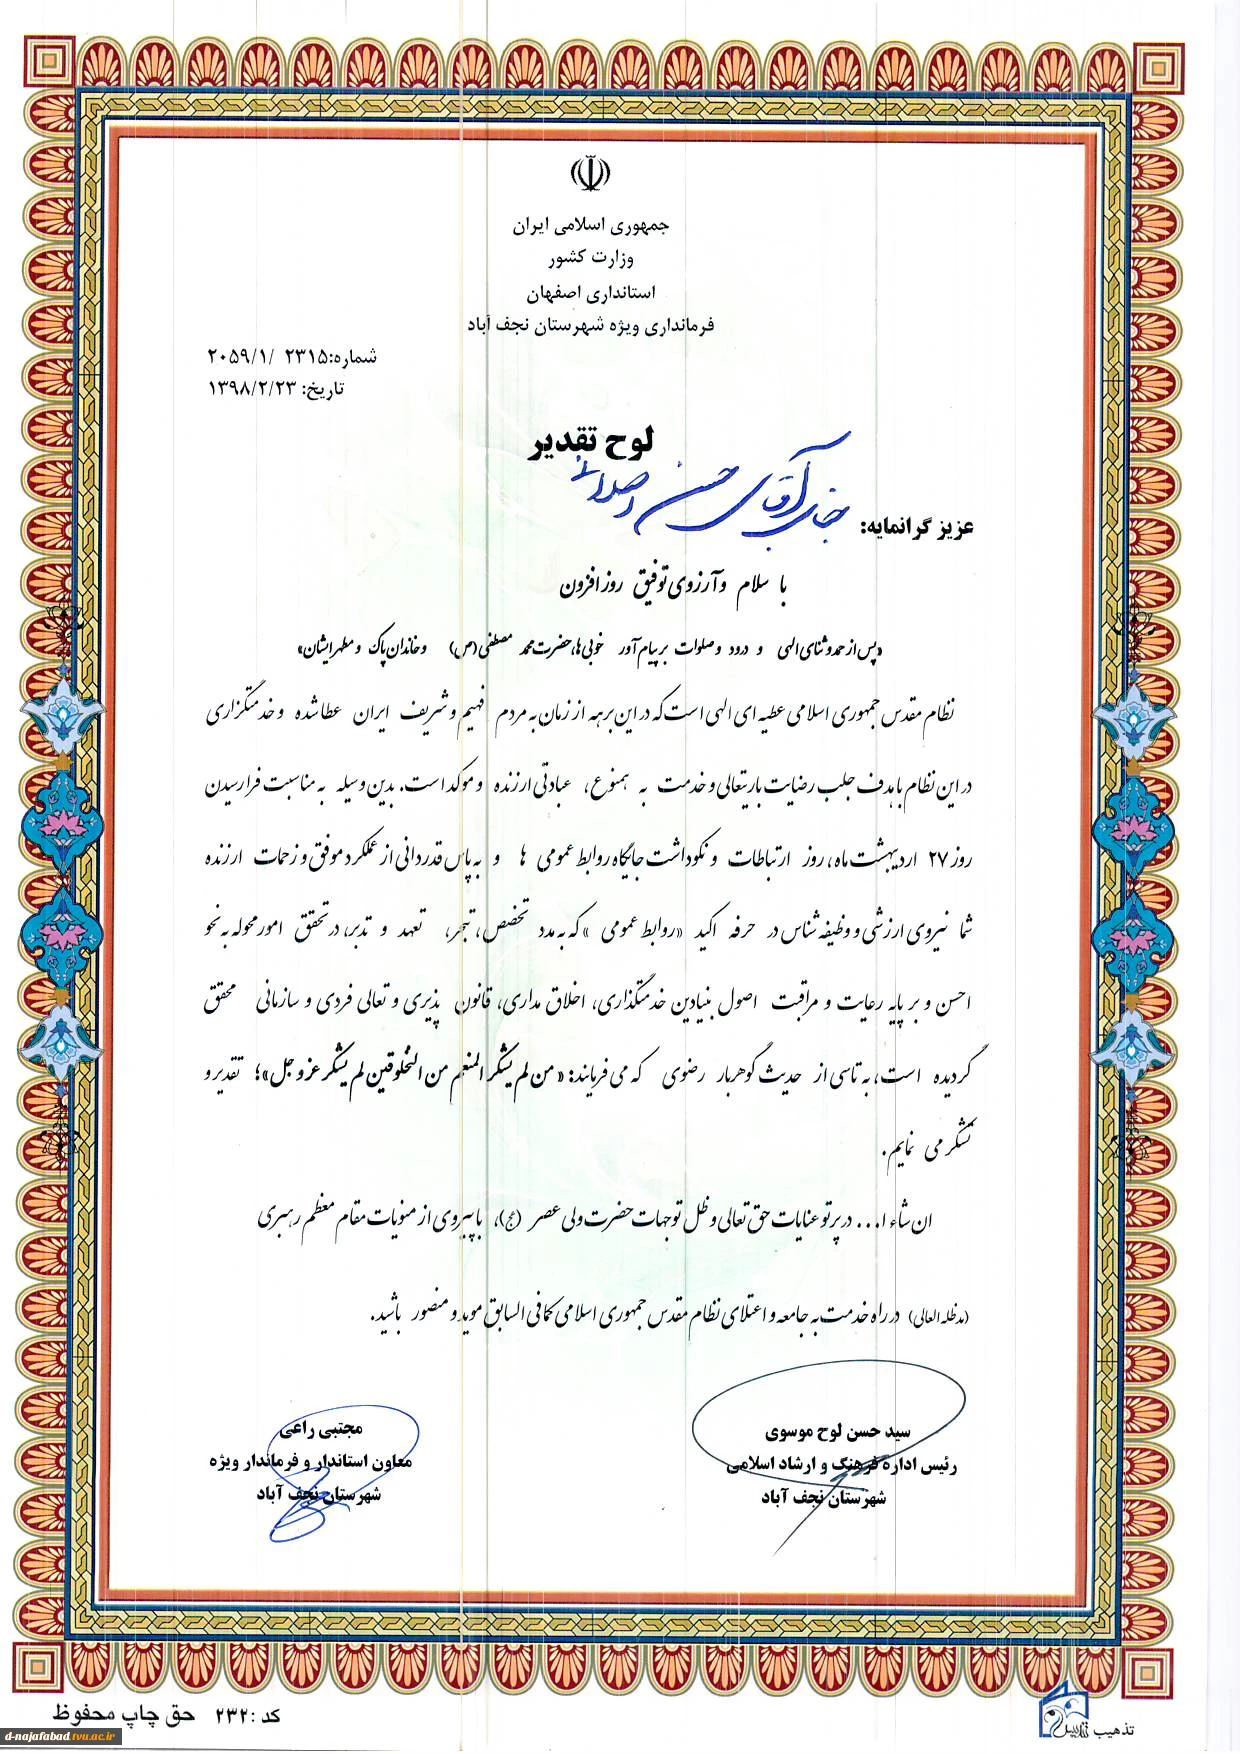 جمهوری اسلامی ایران
وزارت کشور
استانداری اصفهان
فرمانداری ویژه شهرستان نجف آباد
شماره: ۲۳۱۵ /۲۰۵۹/۱
تاریخ: ۱۳۹۸/۲/۲۳
لوح تقدیر
عزیز گرانمایه: جناب آقای حسن اصلانی
با سلام و آرزوی توفیق روز افزون
«پس از حمد و ثنای الهی و درود و صلوات بر پیام آور خوبی ها، حضرت محمد مصطفی (ص) و خاندان پاک و مطهر ایشان»
نظام مقدس جمهوری اسلامی عطیه ای الهی است که در این برهه از زمان به مردم فهیم و شریف ایران عطا شده و خدمتگزاری
در این نظام با هدف جلب رضایت باریتعالی و خدمت به همنوع، عبادتی ارزنده و موکد است. بدین وسیله به مناسبت فرارسیدن
روز ۲۷ اردیبهشت ماه، روز ارتباطات و نکوداشت جایگاه روابط عمومی ها و به پاس قدردانی از عملکرد موفق و زحمات ارزنده
شما نیروی ارزشی و وظیفه شناس در حرفه اکید «روابط عمومی» که به مدد تخصص، تبحر، تعهد و تدبر، در تحقق امور محوله به نحو
احسن و بر پایه رعایت و مراقبت اصول بنیادین خدمتگذاری، اخلاق مداری، قانون پذیری و تعالی فردی و سازمانی محقق
گردیده است، به تاسی از حدیث گوهربار رضوی که می فرمایند: «من لم یشکر المنعم من المخلوقین لم یشکر عزوجل»؛ تقدیر و
تشکر می نمایم.
ان شاء ا... در پرتو عنایات حق تعالی و ظل توجهات حضرت ولی عصر (عج)، با پیروی از منویات مقام معظم رهبری
(مدظله العالی) در راه خدمت به جامعه و اعتلای نظام مقدس جمهوری اسلامی کمافی السابق موید و منصور باشید.
سید حسن لوح موسوی
رئیس اداره فرهنگ و ارشاد اسلامی
شهرستان نجف آباد
مجتبی راعی
معاون استاندار و فرماندار ویژه
شهرستان نجف آباد
کد :۲۳۲ حق چاپ محفوظ
تذهیب تندیس
d-najafabad.tvu.ac.ir